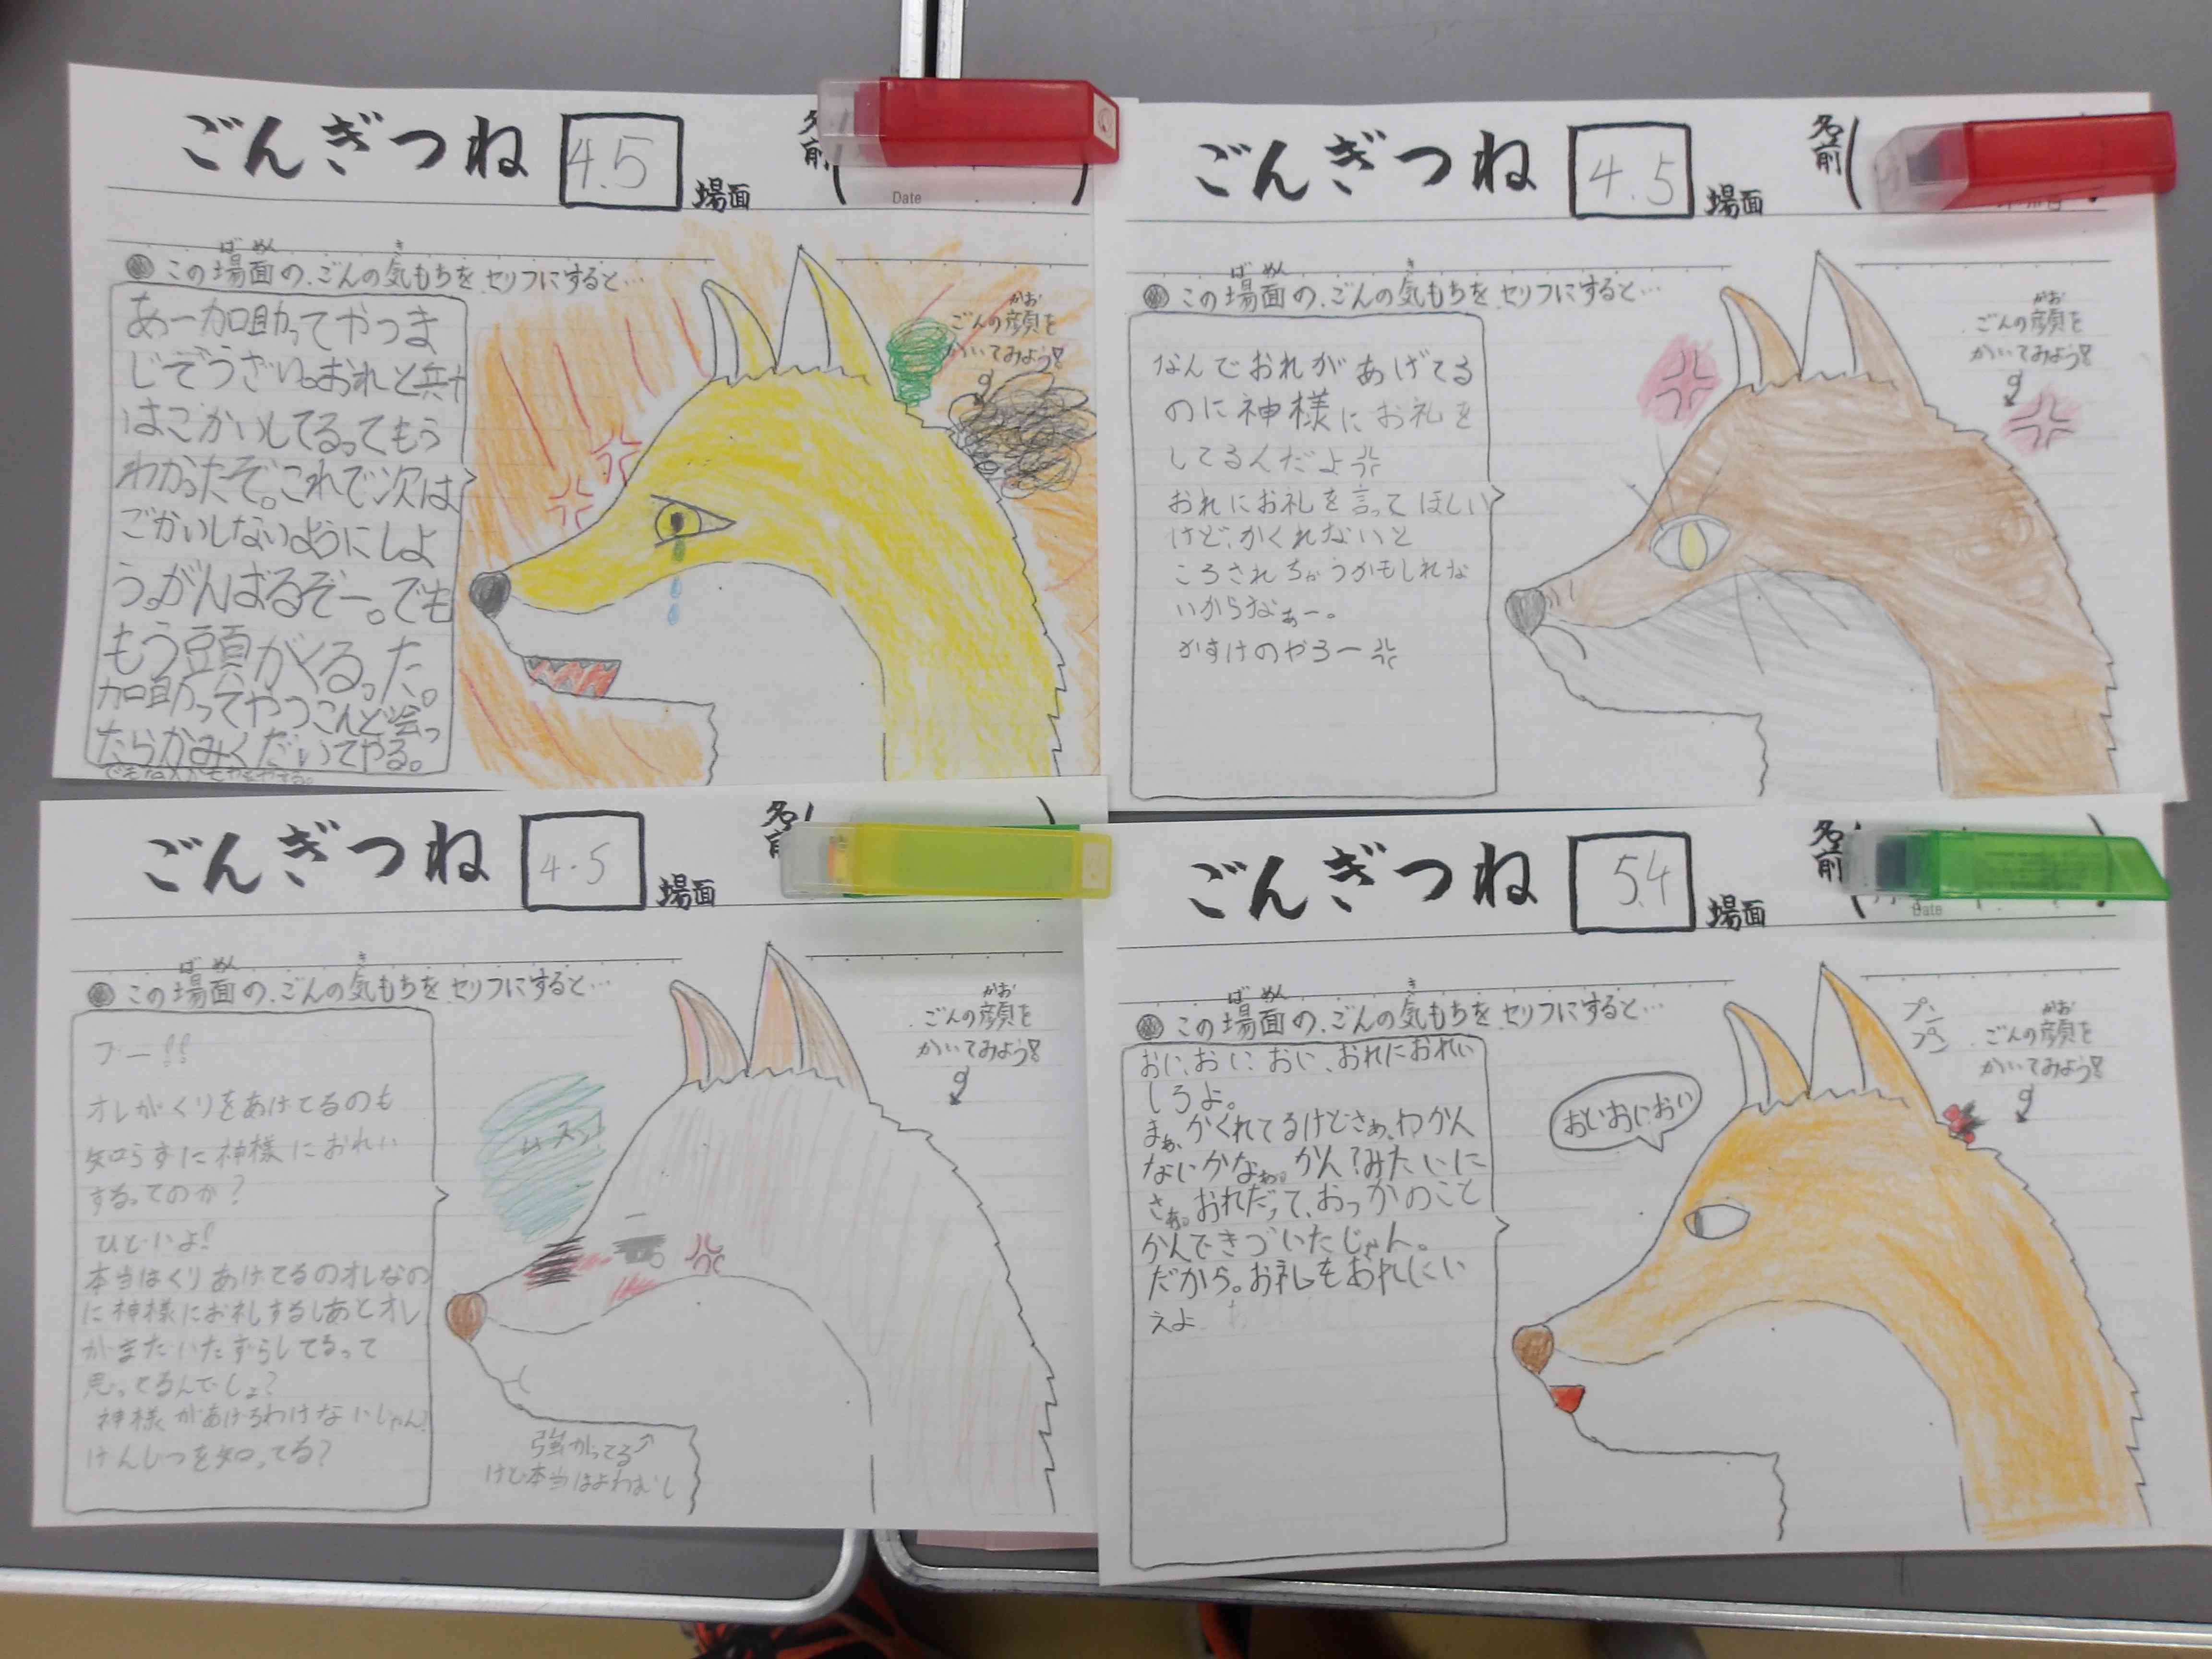 ごんぎつね 4.5 場面 名前
Date
ばめん き
この場面の、ごんの気もちを、セリフにすると…
あー加助ってやつま
じぞうざい。おれと兵十
はごかいしてるってもう
わかったぞ。これで次は
ごかいしないようにしよ
う。がんばるぞー。でも
もう頭がくるった。
加助ってやつこんど会っ
たらかみくだいてやる。
かお
ごんの顔を
かいてみよう!
ごんぎつね 4.5 場面 名前
ばめん き
この場面の、ごんの気もちを、セリフにすると…
なんでおれがあげてる
のに神様にお礼を
してるんだよ
おれにお礼を言ってほしい
けど、かくれないと
ころされちゃうかもしれな
いからなぁー。
かすけのやろー
かお
ごんの顔を
かいてみよう!
ごんぎつね 4.5 場面 名前
ばめん き
この場面の、ごんの気もちを、セリフにすると…
フー!!
オレがくりをあげてるのも
知らずに神様におれい
するってのか?
ひどいよ!
本当はくりあげてるのオレなの
に神様にお礼するしあとオレ
がまだいたずらしてるって
思ってるんでしょ?
神様があげるわけないじゃん!
げんじつを知ってる?
ムスッ
強がってる
けど本当はよわむし
かお
ごんの顔を
かいてみよう!
ごんぎつね 5.4 場面 名前
Date
ばめん き
この場面の、ごんの気もちを、セリフにすると…
おい、おい、おい、おれにおれい
しろよ。
まぁ、かくれてるけどさぁ、わかん
ないかなぁ。かん?みたいに
さぁ。おれだって、おっかのこと
かんできづいたじゃん。
だから。お礼をおれにい
えよ
おいおいおい
プンプン
かお
ごんの顔を
かいてみよう!